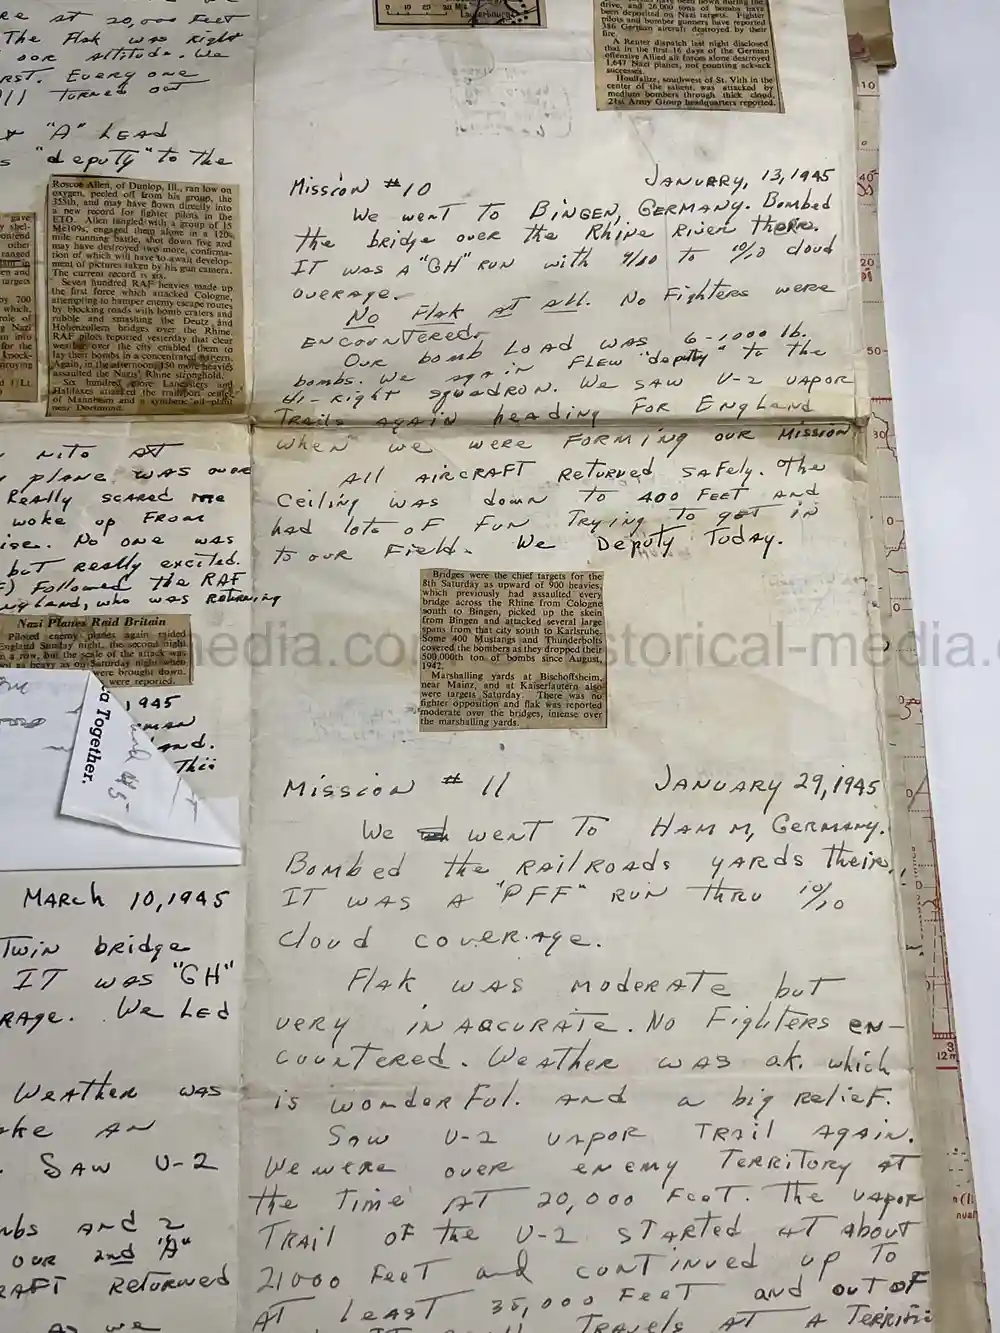 RE AT 20,000 FEET
The Flak was Right
our altitude. We
RST. Every one
All Turned out
"A" LEAD
s "deputy" to the
Roscoe Allen, of Dunlop, Ill., ran low on
oxygen, peeled off from his group, the
355th, and may have flown directly into
a new record for fighter pilots in the
ETO. Allen tangled with a group of 15
Me109s, engaged them alone in a 120-
mile running battle, shot down five and
may have destroyed two more, confirma-
tion of which will have to await develop-
ment of pictures taken by his gun camera.
The current record is six.
Seven hundred RAF heavies made up
the first force which attacked Cologne,
attempting to hamper enemy escape routes
by blocking roads with bomb craters and
rubble and smashing the Deutz and
Hohenzollern bridges over the Rhine.
RAF pilots reported yesterday that clear
weather over the city enabled them to
lay their bombs in a concentrated pattern.
Again, in the afternoon, 150 more heavies
assaulted the Nazis' Rhine stronghold.
Six hundred more Lancasters and
Halifaxes attacked the transport center
of Mannheim and a synthetic oil plant
near Dortmund.
NITO AT
plane was over
Really scared me
woke up From
ise. No one was
but Really excited.
Followed the RAF
ngland, who was Returning
Nazi Planes Raid Britain
Piloted enemy planes again raided
England Sunday night, the second night
in a row, but the scale of the attack was
not as heavy as on Saturday night when
were brought down.
were reported.
1945
and.
This
a Together.
MARCH 10, 1945
TWIN bridge
IT WAS "GH"
RAGE. We LED
WEATHER WAS
ke AN
SAW V-2
mbs AND 2
OUR 2nd "A"
RAFT RETURNED
AS We
0 10 20 30 Mls
drive, and 26,000 tons of bombs have
been deposited on Nazi targets. Fighter
pilots and bomber gunners have reported
386 German aircraft destroyed by their
fire.
A Reuter dispatch last night disclosed
that in the first 16 days of the German
offensive Allied air forces alone destroyed
1,647 Nazi planes, not counting ack-ack
successes.
Houffalize, southwest of St. Vith in the
center of the salient, was attacked by
medium bombers through thick cloud,
21st Army Group headquarters reported.
Mission #10 JANUARY, 13, 1945
We went TO BINGEN, GERMANY. Bombed
the bridge over the Rhine River There.
IT WAS A "GH" RUN with 9/10 to 10/10 cloud
overage.
No Flak at all. No Fighters were
ENCOUNTERED.
Our bomb LOAD WAS 6-1000 lb.
bombs. We again FLEW "deputy" to the
Hi-Right squadron. We SAW V-2 VAPOR
Trails again heading FOR England
when we were FORMING OUR Mission.
All AIRCRAFT Returned safely. The
Ceiling was down TO 400 FEET AND
had lots of FUN Trying to get in
to our Field. We Deputy Today.
Bridges were the chief targets for the
8th Saturday as upward of 900 heavies,
which previously had assaulted every
bridge across the Rhine from Cologne
south to Bingen, picked up the skein
from Bingen and attacked several large
spans from that city south to Karlsruhe.
Some 400 Mustangs and Thunderbolts
covered the bombers as they dropped their
500,000th ton of bombs since August,
1942.
Marshalling yards at Bischoffsheim,
near Mainz, and at Kaiserlautern also
were targets Saturday. There was no
fighter opposition and flak was reported
moderate over the bridges, intense over
the marshalling yards.
Mission #11 JANUARY 29, 1945
We went TO HAMM, GERMANY.
Bombed the RAILROADS yards their.
IT WAS A "PFF" RUN THRU 10/10
cloud coverage.
Flak was moderate but
very INAQCURATE. No Fighters en-
countered. Weather was ok. which
is wonderful. AND a big Relief.
Saw V-2 VAPOR TRAIL AGAIN.
We were over enemy TERRITORY AT
the Time AT 20,000 Feet. The VAPOR
TRAIL OF the V-2 STARTED AT ABOUT
21000 FEET and CONTINUED up TO
AT LEAST 35,000 FEET AND OUT OF
TRAVELS AT A TERRIFIC